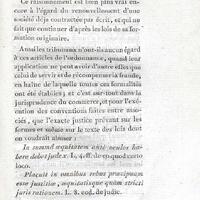 Ce raisonnement est bien plus vrai en-
core à l'égard du renouvellement d'une
société déja contractée par écrit, et qui ne
fait que continuer d'après les lois de sa for-
mation originaire.
Aussi les tribunaux n'ont-ils aucun égard
à ces articles de l'ordonnance, quand leur
application ne peut avoir d'autre effet que
celui de servir et de récompenser la fraude,
en haine de laquelle toutes ces formalités
ont été établies; et c'est sur-tout dans la
jurisprudence du commerce, et pour l'exé-
cution des conventions faites entre asso-
ciés, que l'exacte justice prévaut sur les
formes et même sur le texte des lois dont
on voudrait abuser;
In summâ æquitatem ante oculos ha-
bere debet judex. L. 4, ff. de eo quod certo
loco.
Placuit in omnibus rebus præcipuam
esse justitiæ, æquitatisque quàm stricti
juris rationem. L. 8. cod. de judic.